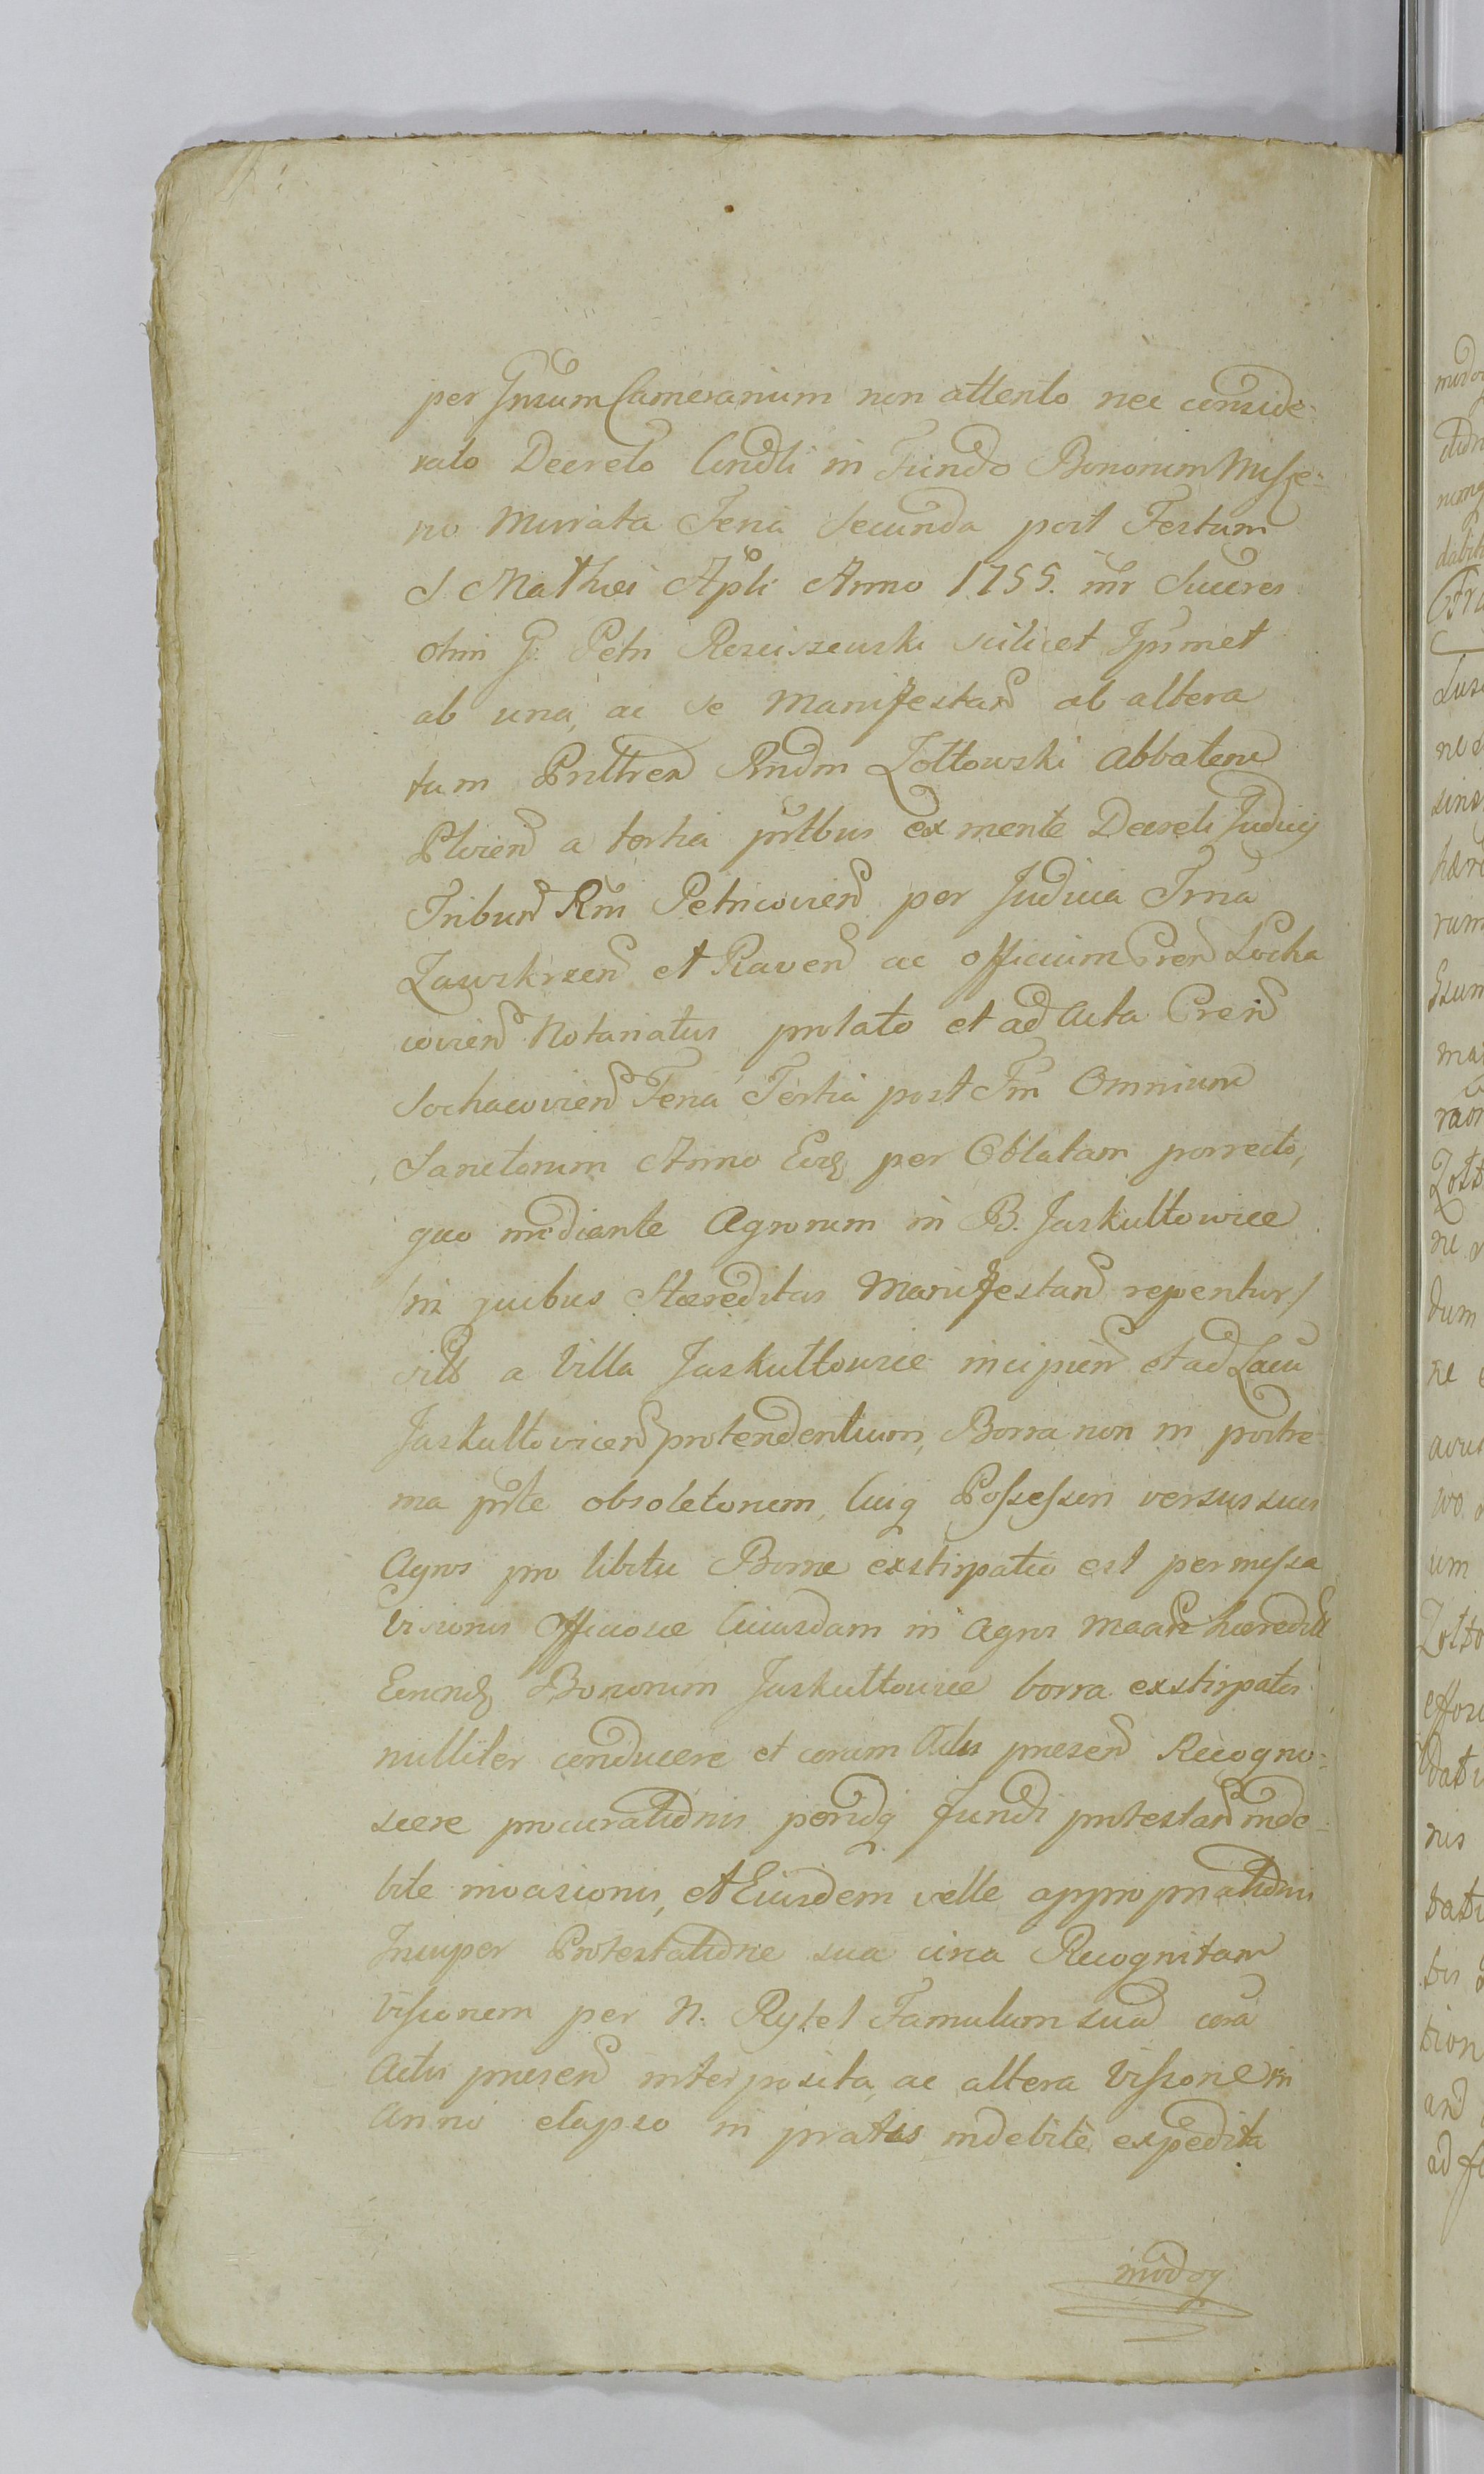 per Gnsum Camerarium non attento nec conside-
rato Decreto Condli in Fundo Bonorum
no Murata Feria Secunda post Festum
S. Mathei Apli Anno 1755. inr Succres
olim G. Petri Resciszewski scilicet Ipsmet
ab una, ac se Manifestan ab altera
tum Rndm Zołtowski Abbatem
Plocien a tertia prtbus ex mente Decreti Judicij
Tribun Rni Petricovien per Judicia Trria
Zawskrzen et Raven ac officium Cren Socha
covien Notariatus prolato et ad Acta Cren
Sochacovien Feria Tertia post Fm Omnium
Sanctorum Anno Eod per Oblatam porrecto,
quo mediante Agrorum in B. Jaskułtowice
/in quibus Hæreditas Manifestan reperitur/
a Villa Jaskułtowice incipien et ad Lacu
Jaskułtovicen protendentium, Borra non in postre-
ma prte obsoletorum, Cuiq Possessori versus suos
Agros pro libitu Borræ exstirpatio est permissa
Visionis Officiosæ Cuiusdam in Agros hæredit
Eornd Bonorum Jaskułtowice borra exstirpatos
nulliter conducere et coram Actis præsen Recogno-
scere procurationis periodq fundi protestan inde-
bite invasionis, et Eiusdem velle appropriationis
Insuper Protestatione sua circa Recognitam
Vissionem per N. Rytel Famulum suu cora
Actis præsen interposita, ac altera Vissione in
Anno elapso in pratis indebitè expedita
modoq